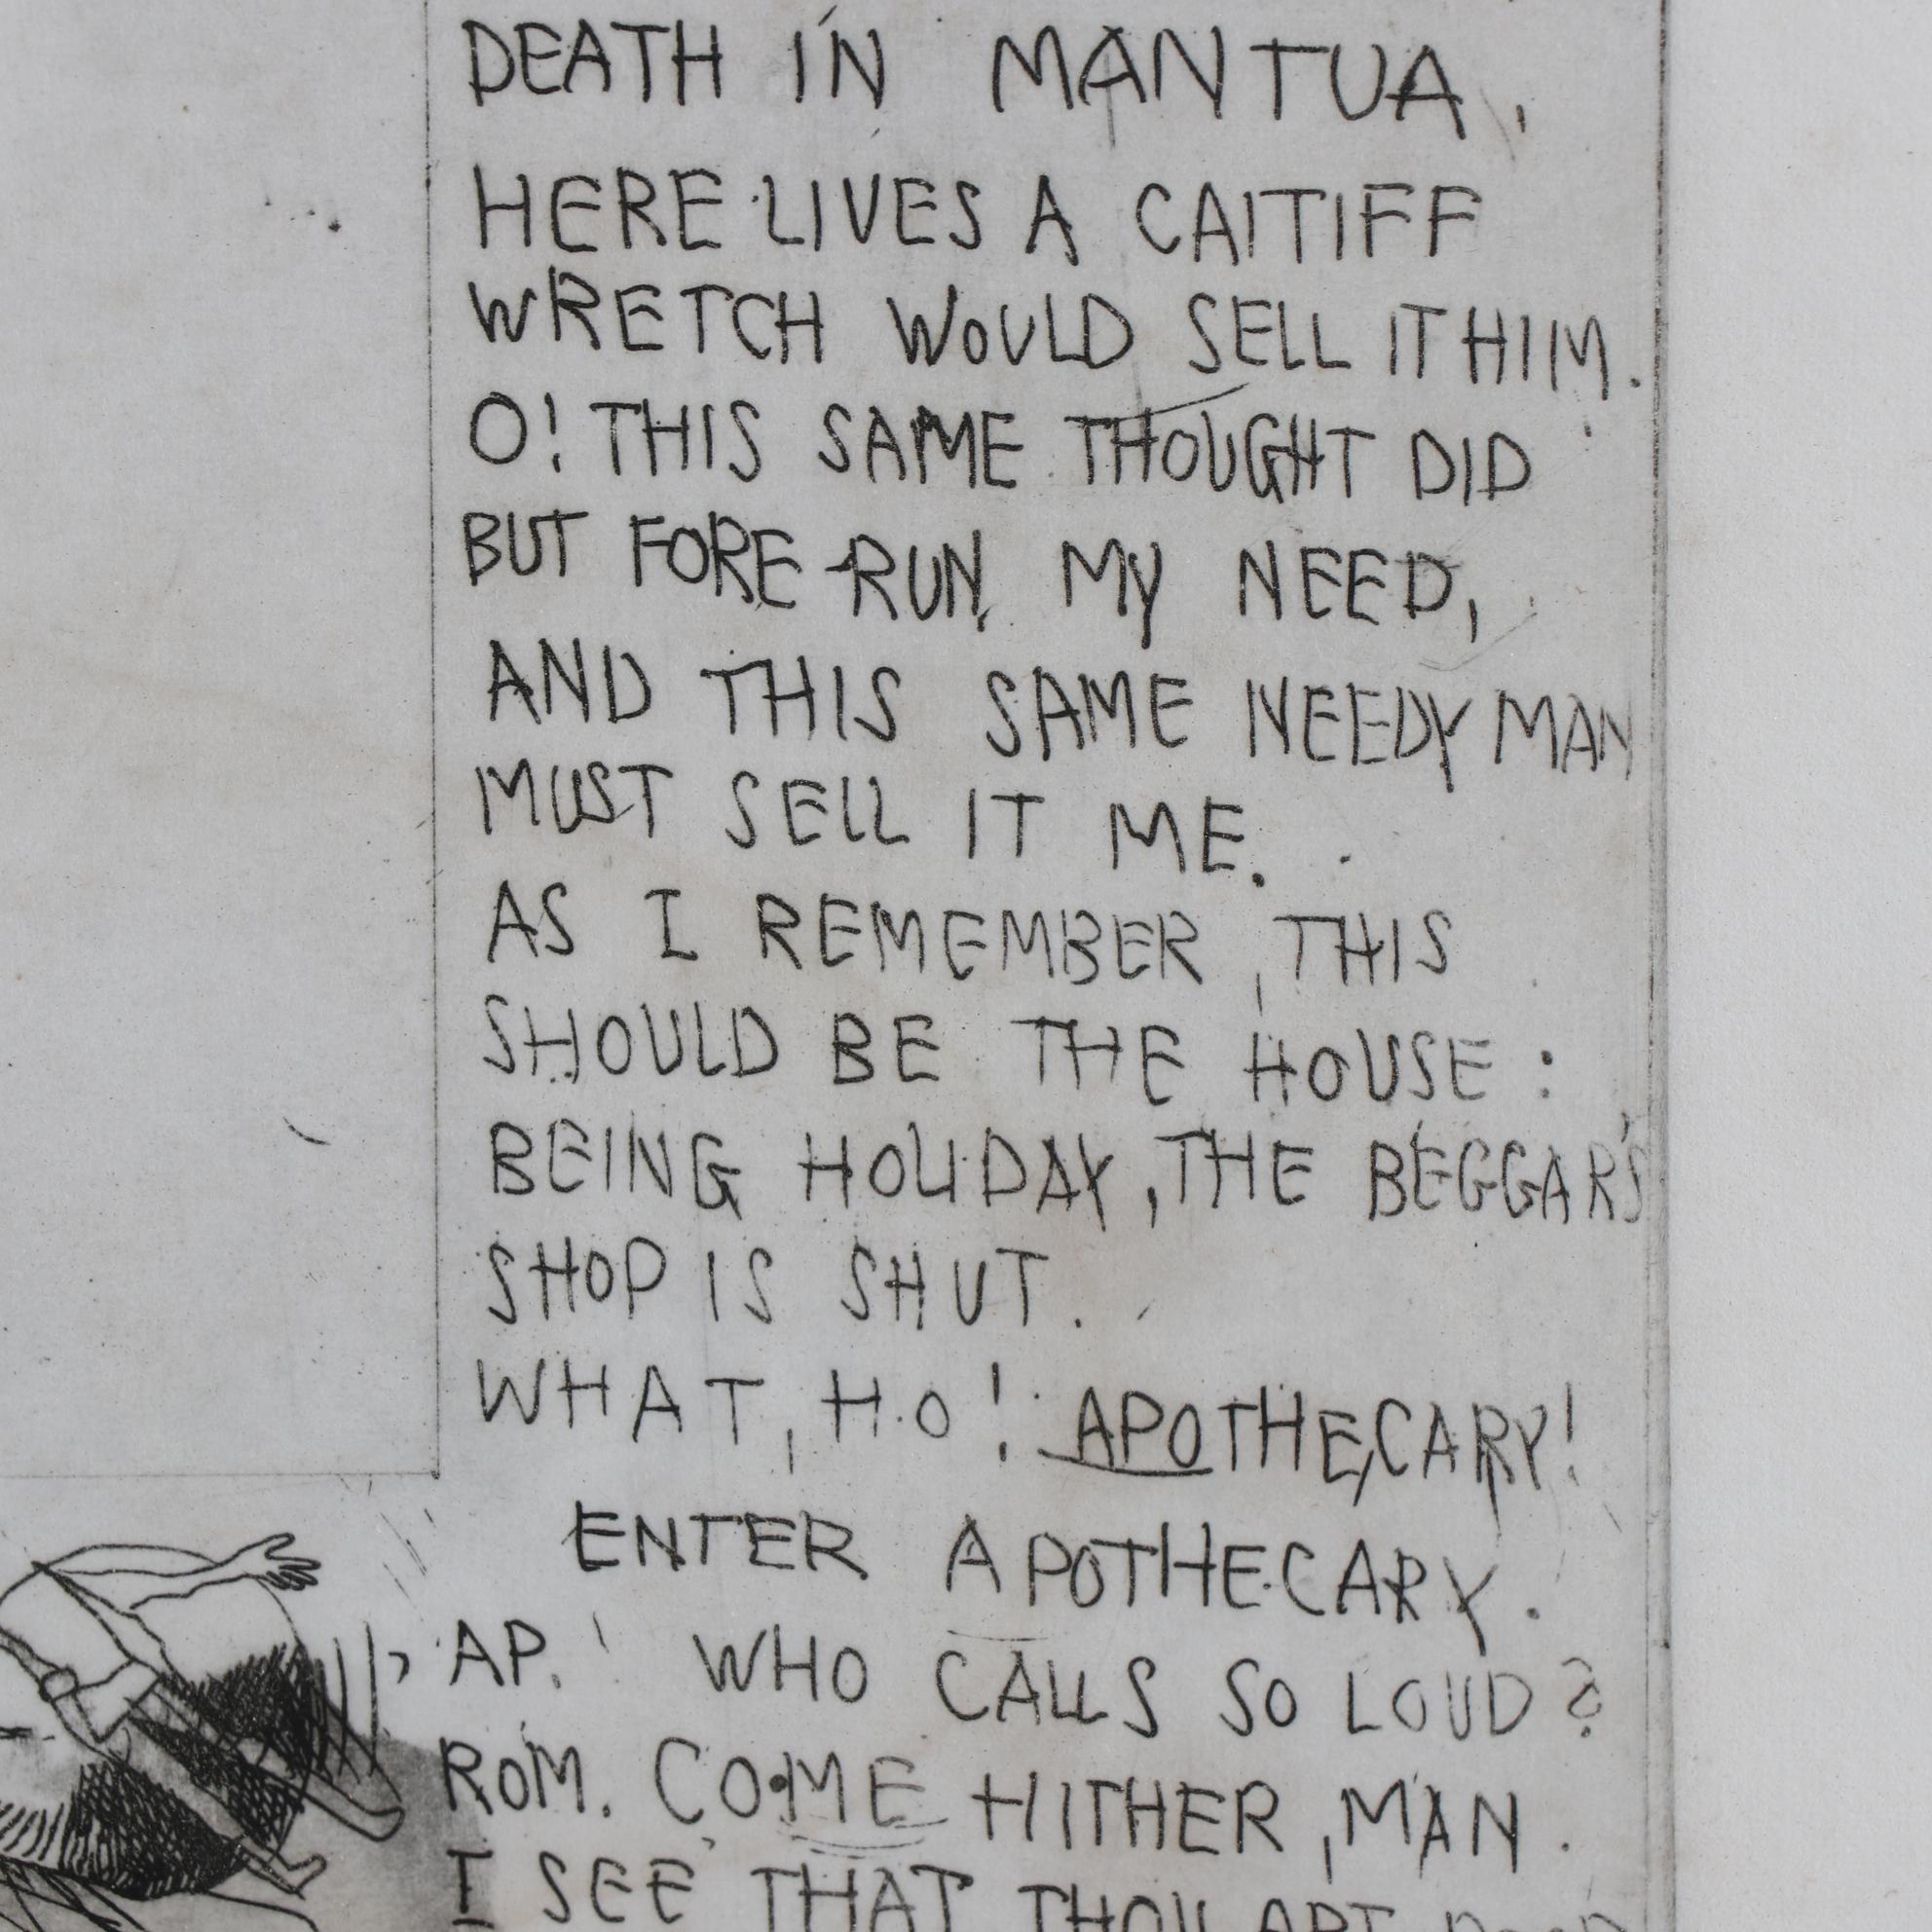 DEATH IN MANTUA,
HERE LIVES A CAITIFF
WRETCH WOULD SELL IT HIM.
O! THIS SAME THOUGHT DID
BUT FORE-RUN MY NEED,
AND THIS SAME NEEDY MAN
MUST SELL IT ME.
AS I REMEMBER, THIS
SHOULD BE THE HOUSE:
BEING HOLIDAY, THE BEGGAR'S
SHOP IS SHUT.
WHAT, HO! APOTHECARY!
ENTER APOTHECARY.
AP. WHO CALLS SO LOUD?
ROM. COME HITHER, MAN.
I SEE THAT THOU ART POOR